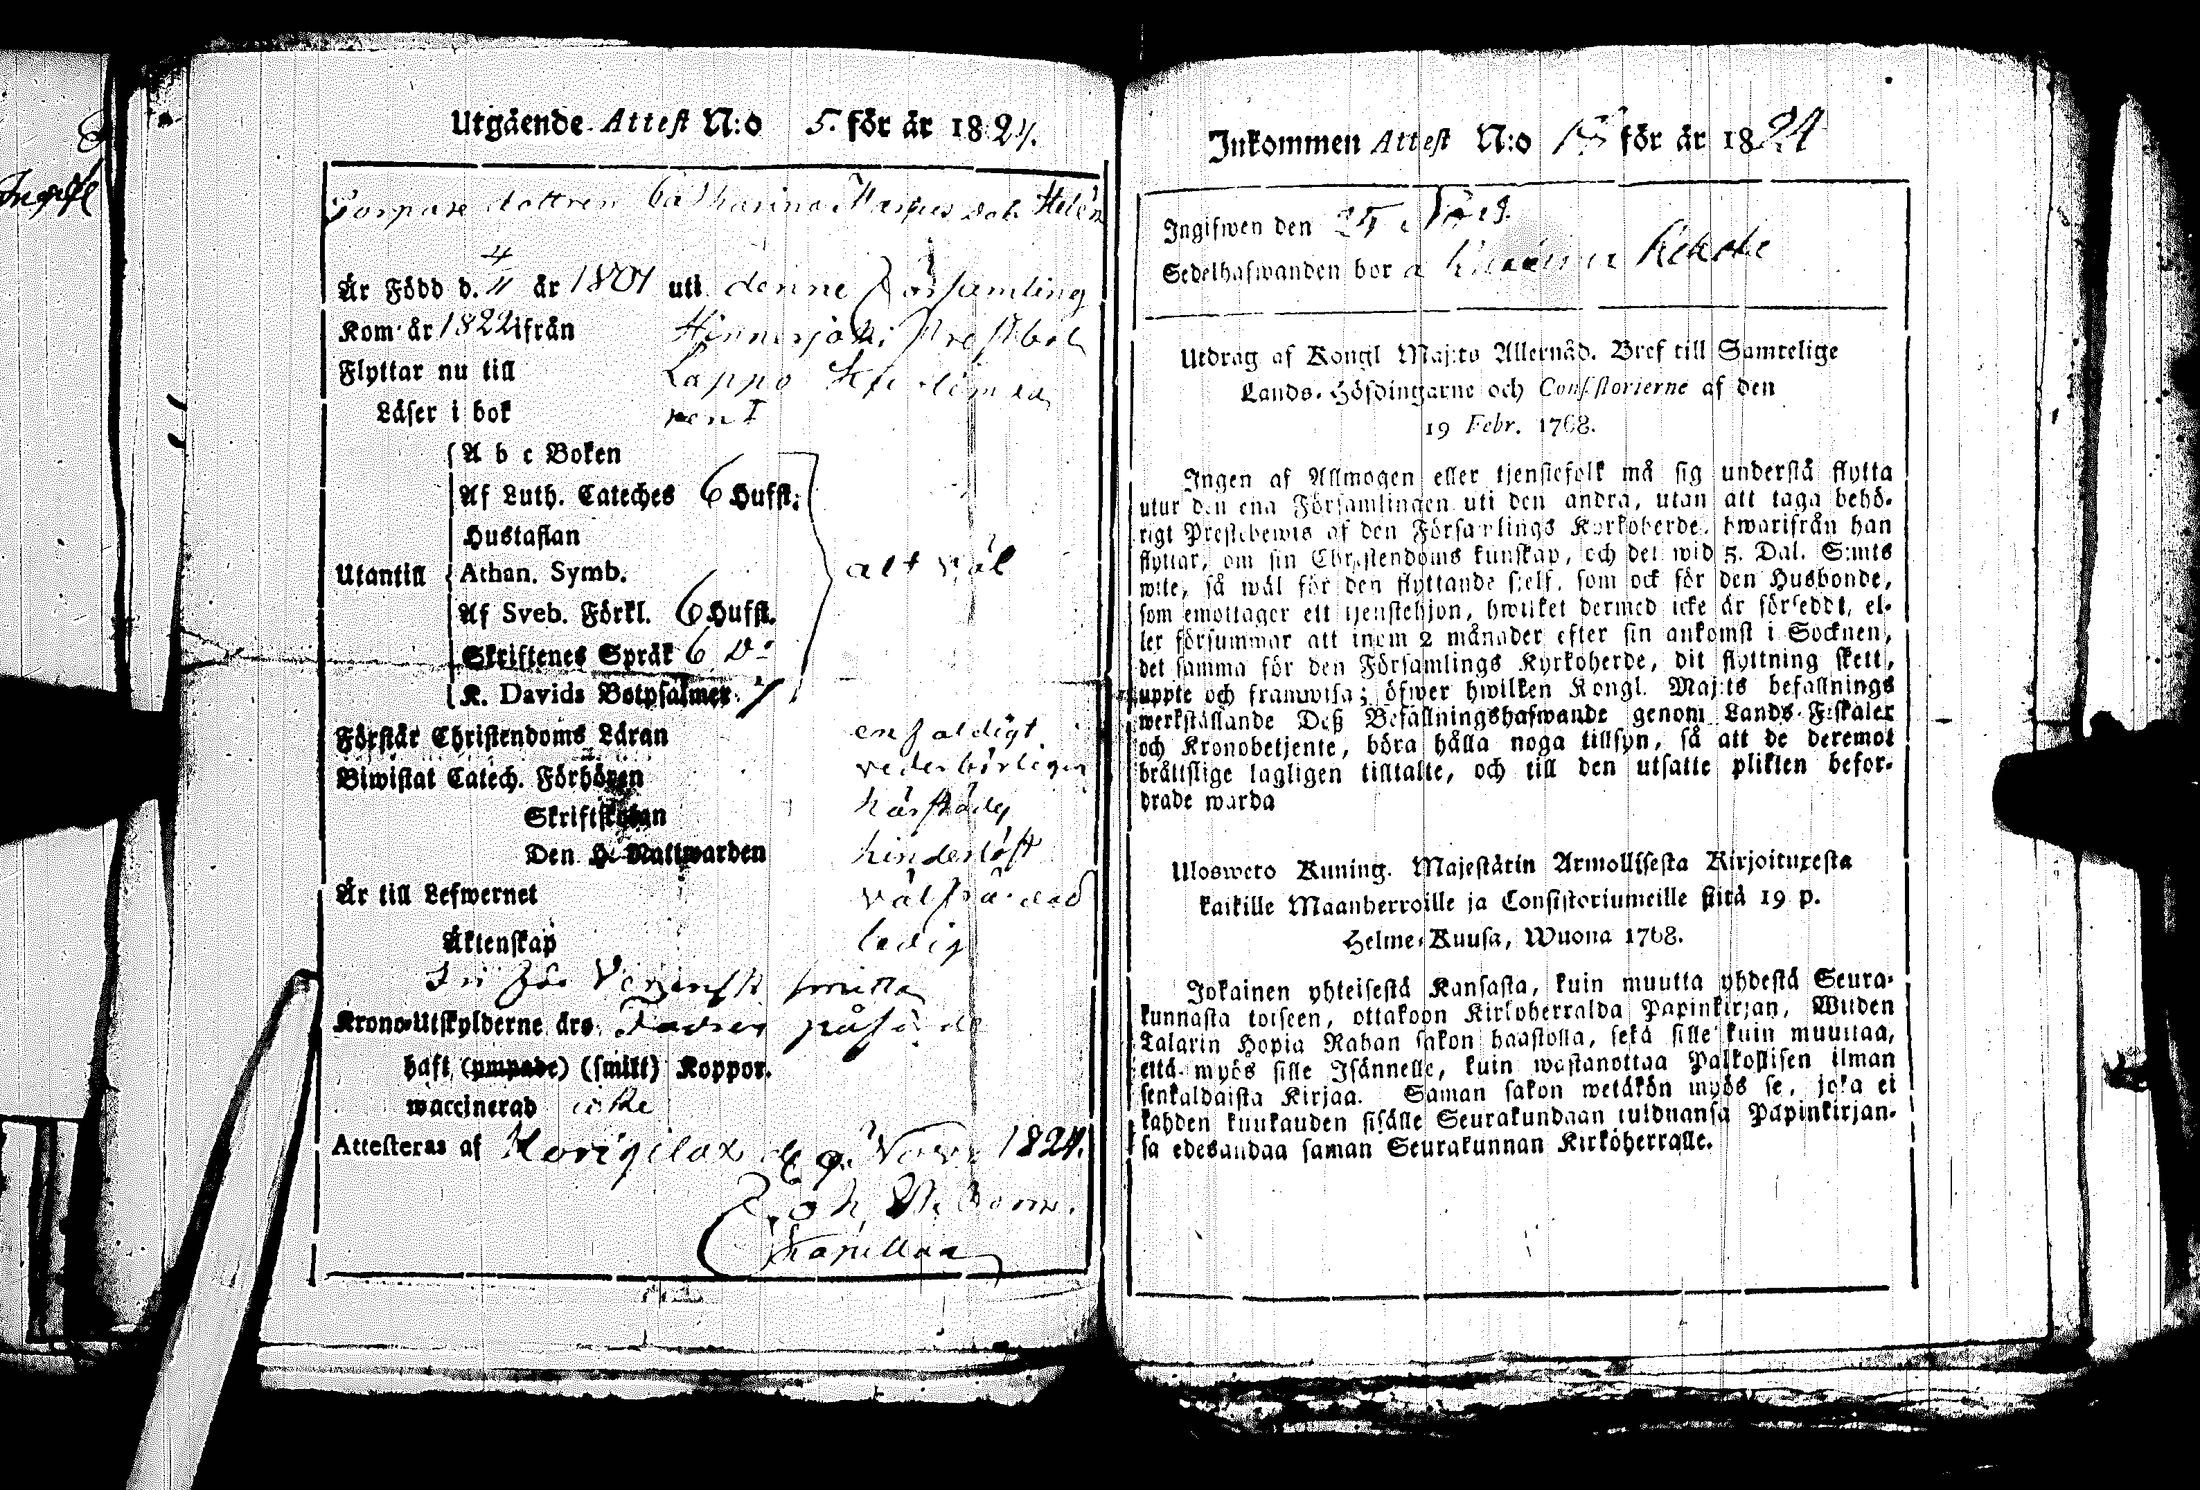 Utgående Attest N:o 5. för år 1824.
dottren Catharina
Är Född d. 4/11 år 1801 uti denne Församling
Kom år 1822 ifrån Hinnerjoki
Flyttar nu till Lappo
Läser i bok rent
A b c Boken
Af Luth. Cateches 6 Hufst.
Hustaflan
Utantill Athan. Symb. alt väl
Af Sveb. Förkl. 6 Hufst.
Skriftenes Språk 6 Do
K. Davids Botpsalmer 7
Förstår Christendoms Läran enfaldigt
Biwistat Catech. Förhören vederbörligen
Skriftskolan härstädes
Den H. Nattwarden hinderlöst
Är till Lefwernet välfrägdad
Äktenskap ledig
Fri för Venerisk smitta
Krono-Utskylderne äro
haft (ympade) (smitt) Koppor.
waccinerad icke
Attesteras af Hongilax d. 9. Nov. 1824.
Joh.
Kapellan
Inkommen Attest N:o 15 för år 1824
Ingifwen den
Sedelhafwanden bor
Utdrag af Kongl Maj:ts Allernåd. Bref till Samtelige
Lands-Höfdingarne och Consistorierne af den
19 Febr. 1768.
Ingen af Allmogen eller tjenstefolk må sig understå flytta
utur den ena Församlingen uti den andra, utan att taga behö-
rigt Prestebewis af den Församlings Kyrkoherde, hwarifrån han
flyttar, om sin Christendoms kunskap, och det wid 5. Dal. S:mts
wite, så wäl för den flyttande sielf, som ock för den Husbonde,
som emottager ett tjenstehjon, hwilket dermed icke är förseddt, el-
ler försummar att inom 2 månader efter sin ankomst i Socknen,
det samma för den Församlings Kyrkoherde, dit flyttning skett,
uppte och framwisa; öfwer hwilken Kongl. Maj:ts befallnings
werkställande Deß Befallningshafwande genom Lands-Fiskaler
och Kronobetjente, böra hålla noga tillsyn, så att de deremot
bråttslige lagligen tilltalte, och till den utsatte plikten befor-
drade warda
Uloswero Kuning. Majestätin Armollisesta Kirjoituxesta
kaikille Maanherroille ja Consistoriumeille siitä 19 p.
Helme-Kuusa, Wuona 1768.
Jokainen yhteisestä Kansasta, kuin muutta yhdestä Seura-
kunnasta toiseen, ottakoon Kirkoherralda Papinkirjan, Wiiden
Talarin Hopia Rahan sakon haastolla, sekä sille kuin muuttaa,
että myös sille Isännelle, kuin wastanottaa Palkollisen ilman
senkaldaista Kirjaa. Saman sakon wetäkön myös se, joka ei
kahden kuukauden sisälle Seurakundaan tulduansa Papinkirjan-
sa edesandaa saman Seurakunnan Kirkoherralle.